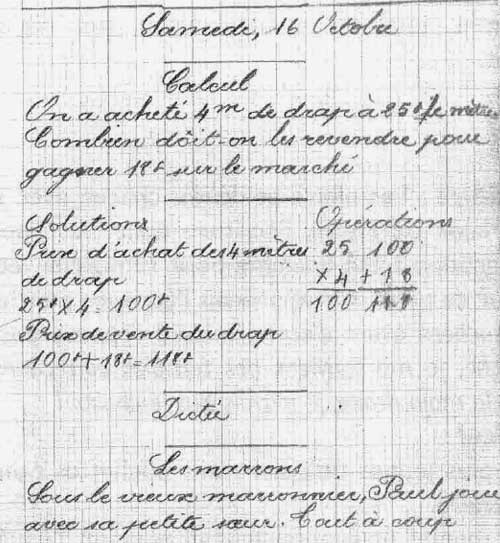 Samedi, 16 Octobre
Calcul
On a acheté 4m de drap à 25f le mètre
Combien doit-on les revendre pour
gagner 18f sur le marché
Solutions Opérations
Prix d'achat des 4 mètres 25 100
de drap ×4 +18
25f × 4 = 100f 100 118
Prix de vente du drap
100f + 18f = 118f
Dictée
Les marrons
Sous le vieux marronnier, Paul joue
avec sa petite sœur. Tout à coup